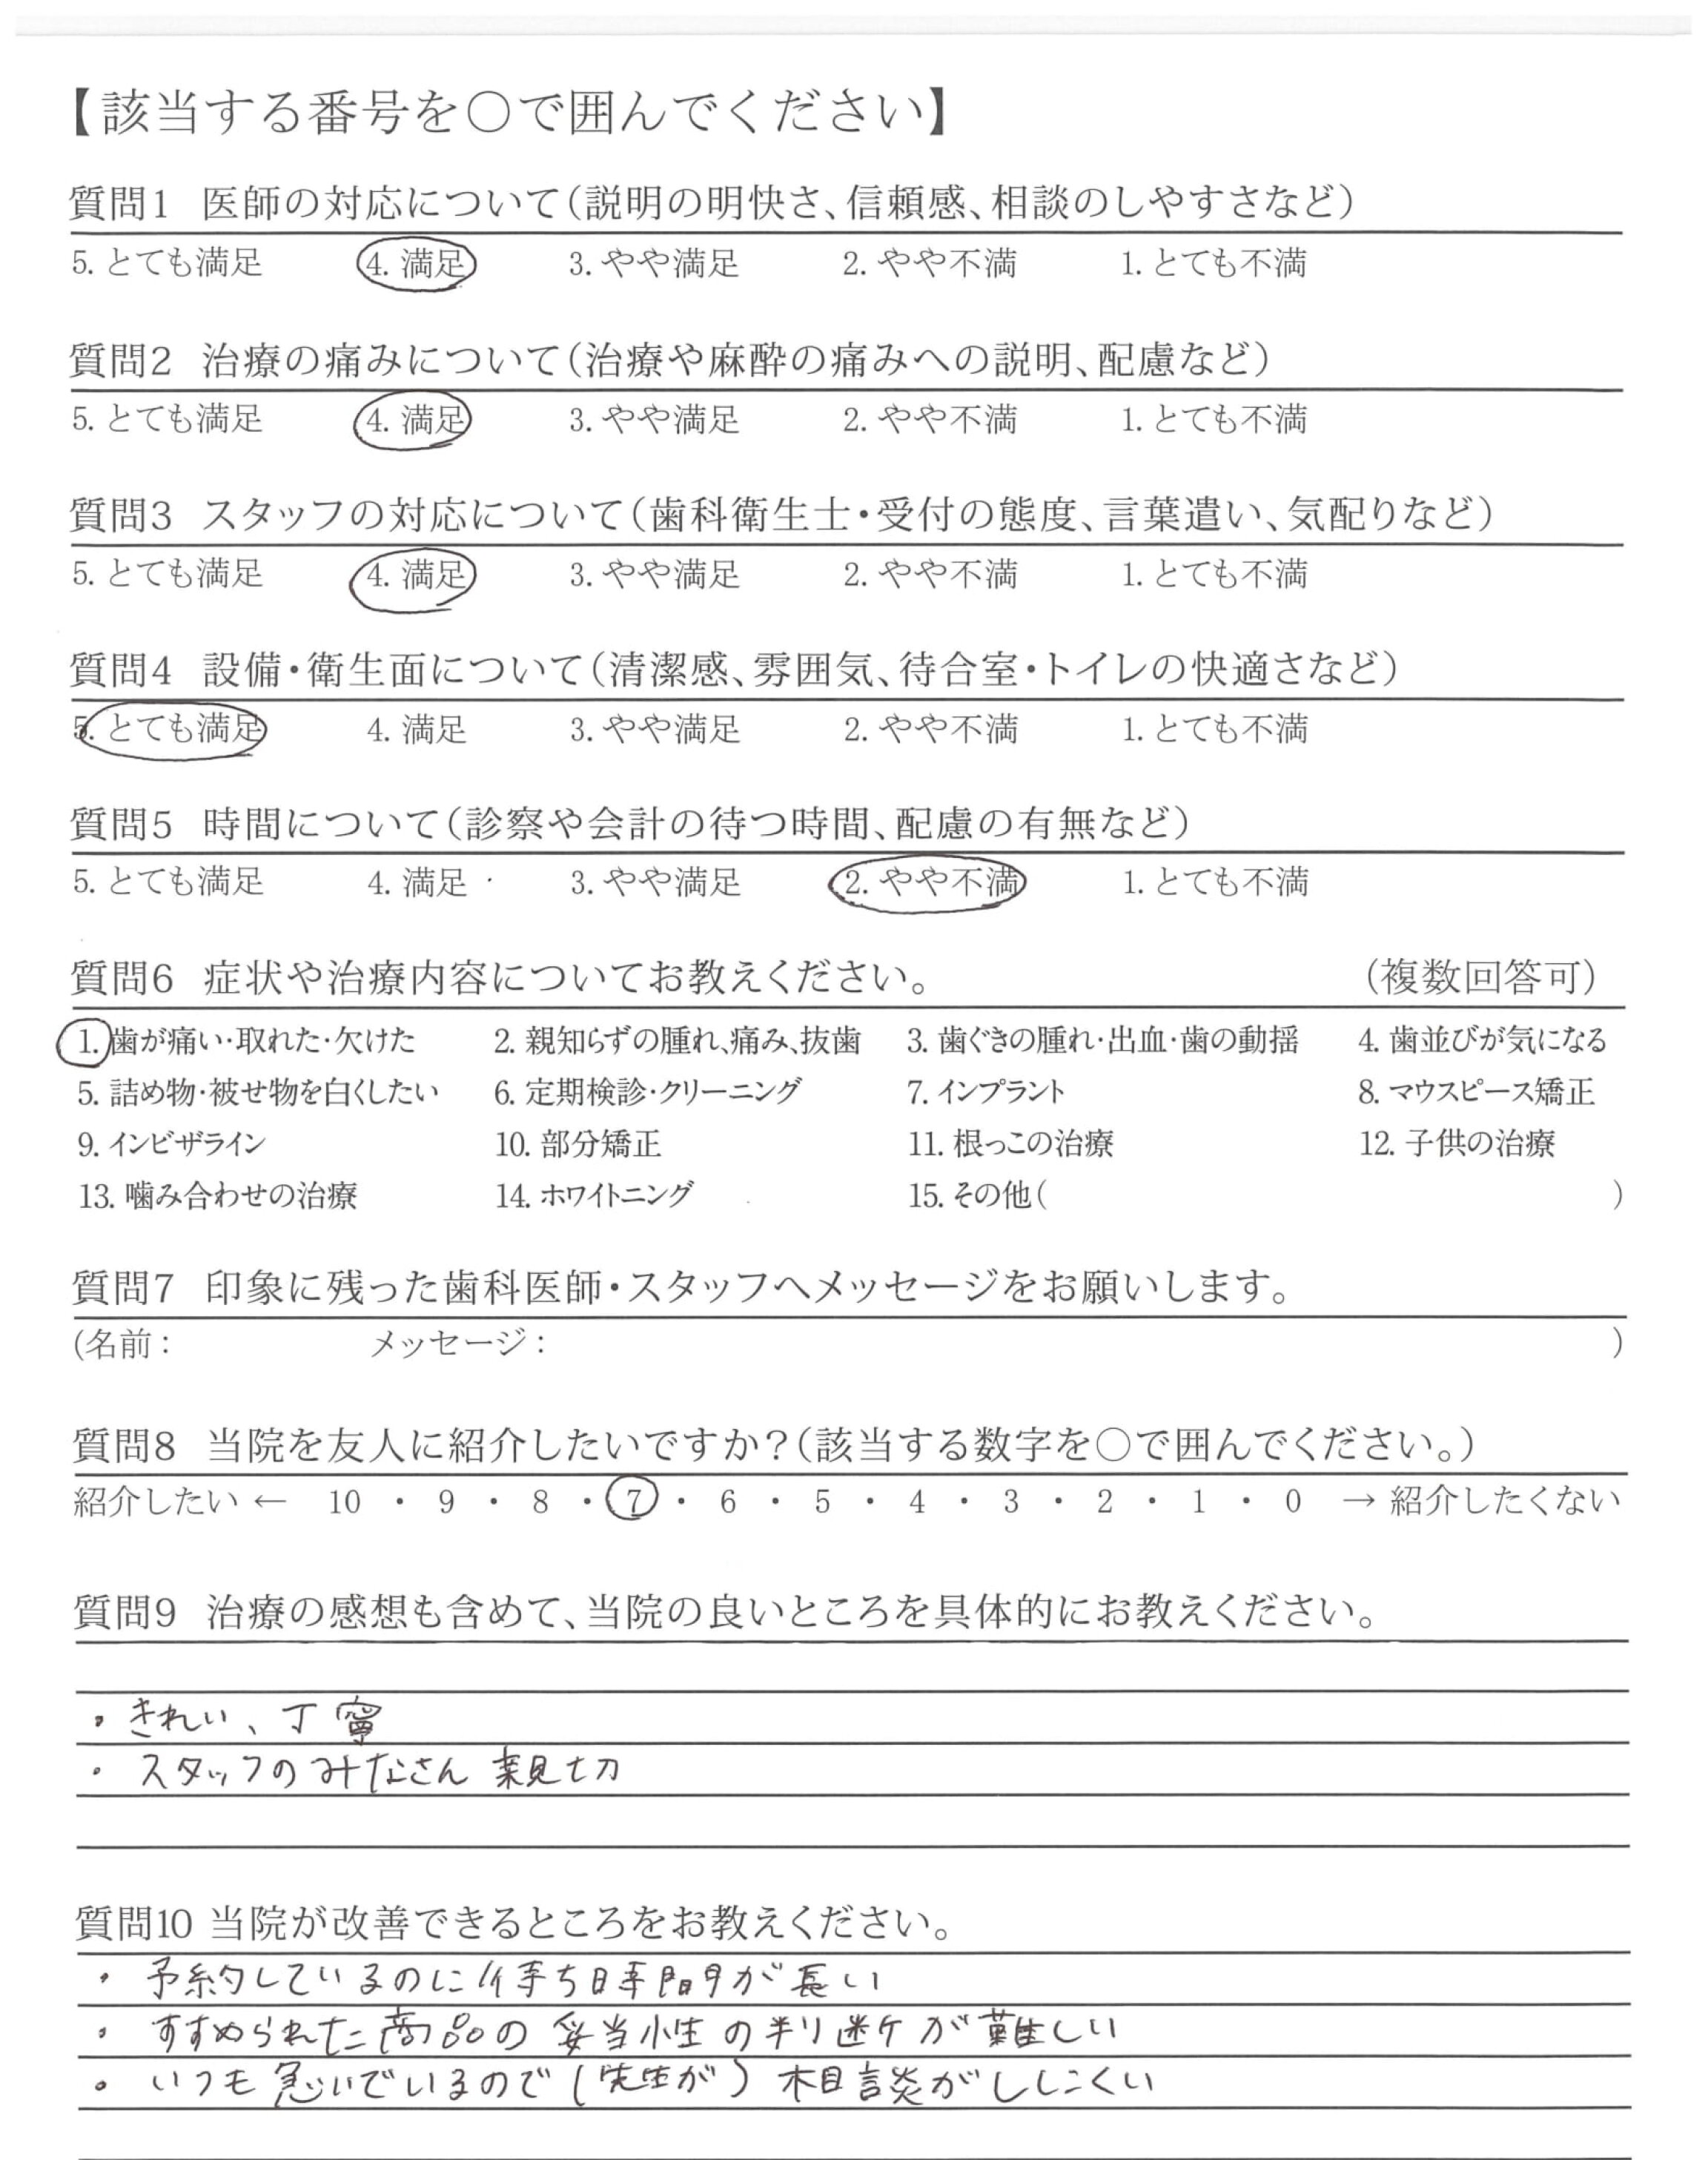 【該当する番号を〇で囲んでください】
質問1 医師の対応について(説明の明快さ、信頼感、相談のしやすさなど)
5. とても満足 4. 満足 3. やや満足 2. やや不満 1. とても不満
質問2 治療の痛みについて(治療や麻酔の痛みへの説明、配慮など)
5. とても満足 4. 満足 3. やや満足 2. やや不満 1. とても不満
質問3 スタッフの対応について(歯科衛生士・受付の態度、言葉遣い、気配りなど)
5. とても満足 4. 満足 3. やや満足 2. やや不満 1. とても不満
質問4 設備・衛生面について(清潔感、雰囲気、待合室・トイレの快適さなど)
5. とても満足 4. 満足 3. やや満足 2. やや不満 1. とても不満
質問5 時間について(診察や会計の待つ時間、配慮の有無など)
5. とても満足 4. 満足 3. やや満足 2. やや不満 1. とても不満
質問6 症状や治療内容についてお教えください。 (複数回答可)
1. 歯が痛い・取れた・欠けた 2. 親知らずの腫れ、痛み、抜歯 3. 歯ぐきの腫れ・出血・歯の動揺 4. 歯並びが気になる
5. 詰め物・被せ物を白くしたい 6. 定期検診・クリーニング 7. インプラント 8. マウスピース矯正
9. インビザライン 10. 部分矯正 11. 根っこの治療 12. 子供の治療
13. 噛み合わせの治療 14. ホワイトニング 15. その他( )
質問7 印象に残った歯科医師・スタッフへメッセージをお願いします。
(名前: メッセージ: )
質問8 当院を友人に紹介したいですか?(該当する数字を〇で囲んでください。)
紹介したい ← 10 ・ 9 ・ 8 ・ 7 ・ 6 ・ 5 ・ 4 ・ 3 ・ 2 ・ 1 ・ 0 → 紹介したくない
質問9 治療の感想も含めて、当院の良いところを具体的にお教えください。
・きれい、丁寧
・スタッフのみなさん 親切
質問10 当院が改善できるところをお教えください。
・予約しているのに待ち時間が長い
・すすめられた商品の妥当性の判断が難しい
・いつも急いでいるので(先生が)相談がしにくい